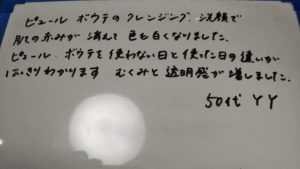 ピュール ボウテのクレンジング、洗顔で
肌の赤みが 消えて 色も白くなりました。
ピュール ボウテを使わない日と使った日の違いが
はっきりわかります むくみと透明感が増しました。
50代 YY